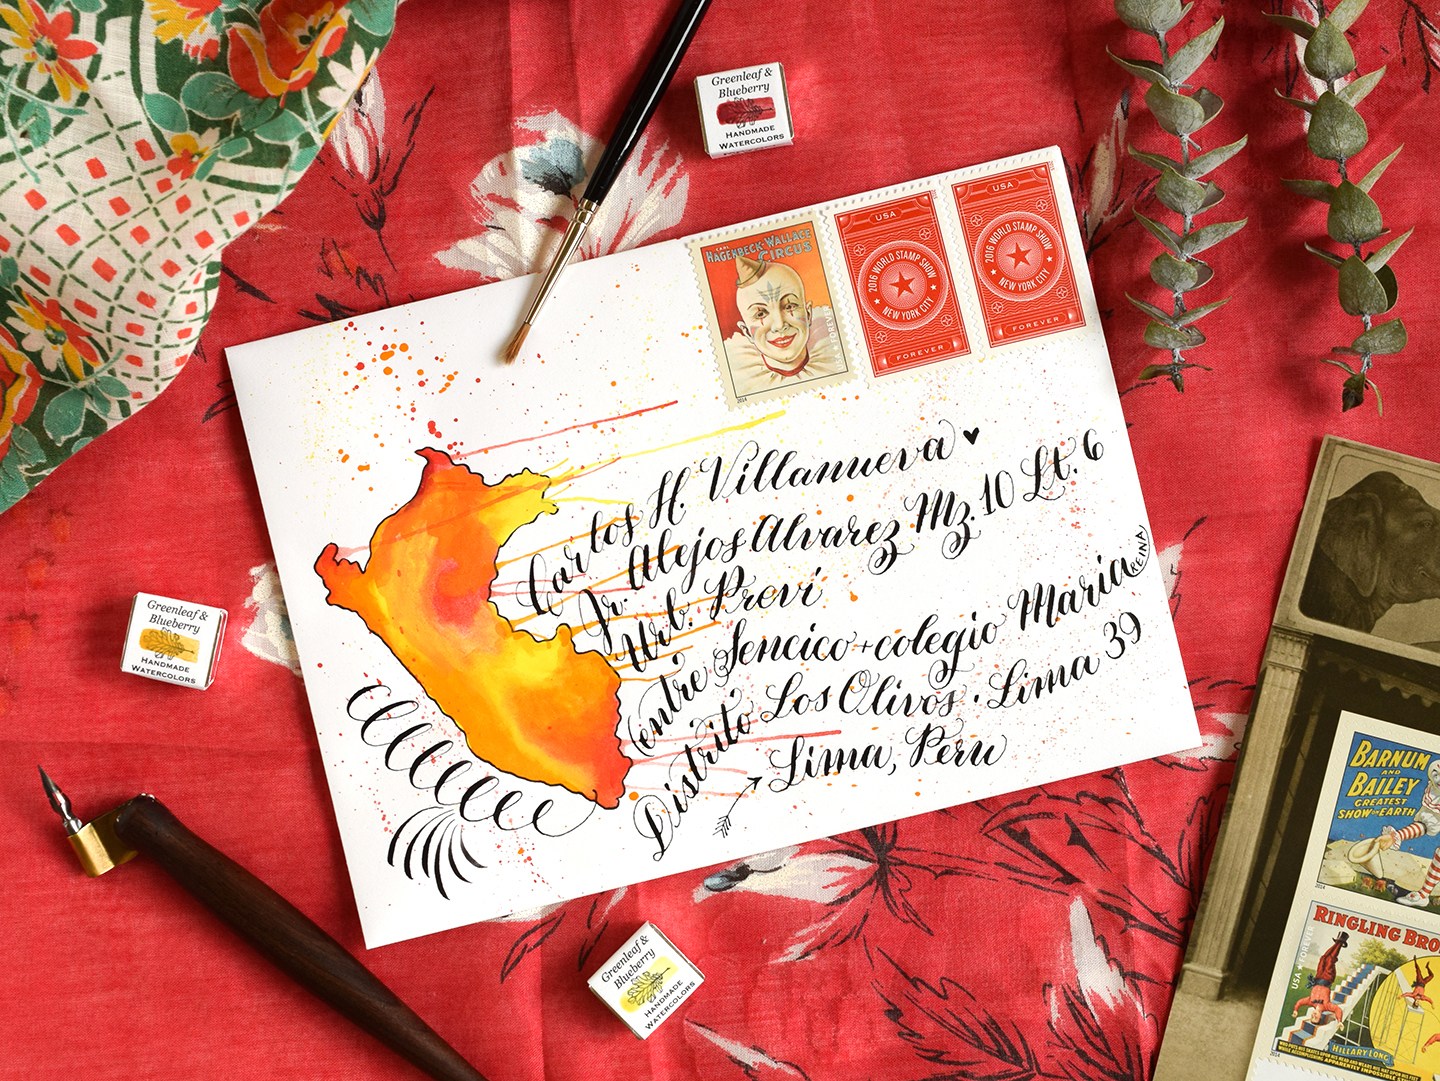 Greenleaf &
Blueberry
HANDMADE
WATERCOLORS
CARL
HAGENBECK-WALLACE
CIRCUS
FOREVER
2014
USA
2016 WORLD STAMP SHOW
NEW YORK CITY
FOREVER
USA
2016 WORLD STAMP SHOW
NEW YORK CITY
FOREVER
Carlos H. Villanueva
Jr. Alejos Alvarez Mz. 10 Lt. 6
Urb. Previ
entre Sencico + colegio Maria REINA
Distrito Los Olivos · Lima 39
Lima, Peru
Greenleaf &
Blueberry
HANDMADE
WATERCOLORS
Greenleaf &
Blueberry
HANDMADE
WATERCOLORS
BARNUM
AND
BAILEY
GREATEST
SHOW ON EARTH
2014
RINGLING BRO
USA FOREVER
HILLARY LONG
2014